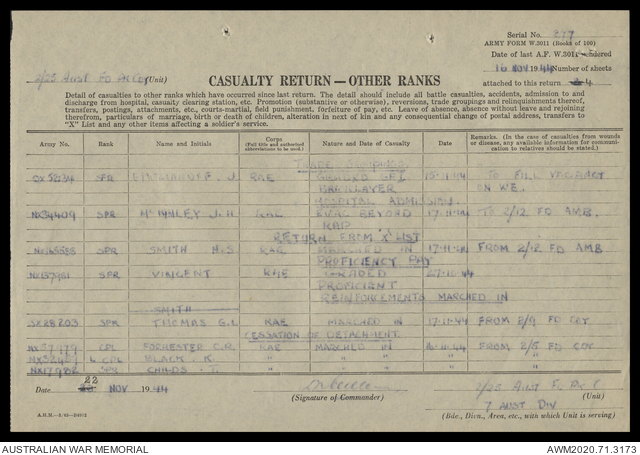 Serial No. 277
ARMY FORM W.3011 (Books of 100)
Date of last A.F. W.3011 rendered
16 NOV 1944 Number of sheets
attached to this return 4
2/25 Aust Fd Pk Coy (Unit)
CASUALTY RETURN — OTHER RANKS
Detail of casualties to other ranks which have occurred since last return. The detail should include all battle casualties, accidents, admission to and
discharge from hospital, casualty clearing station, etc. Promotion (substantive or otherwise), reversions, trade groupings and relinquishments thereof,
transfers, postings, attachments, etc., courts-martial, field punishment, forfeiture of pay, etc. Leave of absence, absence without leave and rejoining
therefrom, particulars of marriage, birth or death of children, alteration in next of kin and any consequential change of postal address, transfers to
"X" List and any other items affecting a soldier's service.
Army No. Rank Name and Initials Corps (Full title and authorised abbreviations to be used.) Nature and Date of Casualty Date Remarks. (In the case of casualties from wounds or disease, any available information for communication to relatives should be stated.)
TRADE GROUPINGS
SPR J. RAE GRADED GP I TO FILL VACANCY
BRICKLAYER ON WE.
HOSPITAL ADMISSION
NX34409 SPR McKINLEY J.H RAE EVAC BEYOND 17-11-44 TO 2/12 FD AMB.
RAP
RETURN FROM X LIST
SPR SMITH H.S RAE MARCHED IN 17-11-44 FROM 2/12 FD AMB
PROFICIENCY PAY
SPR VINCENT RAE GRADED 27-10-44
PROFICIENT
REINFORCEMENTS MARCHED IN
SMITH
SX28203 SPR THOMAS G.L RAE MARCHED IN 17-11-44 FROM 2/9 FD COY.
CESSATION OF DETACHMENT
NX37979 CPL FORRESTER C.R. RAE MARCHED IN FROM 2/5 FD COY.
L CPL BLACK K. " " " "
NX17982 SPR CHILDS T. " " " "
Date 22 NOV 1944
(Signature of Commander)
2/25 Aust F. Pk C (Unit)
7 AUST DIV
(Bde., Divn., Area, etc., with which Unit is serving)
AUSTRALIAN WAR MEMORIAL
AWM2020.71.3173